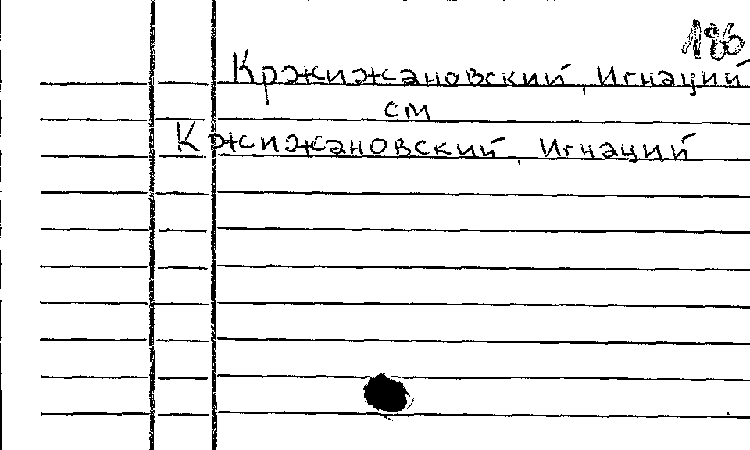 186
Кржижановский, Игнаций
см
Кржижановский, Игнаций